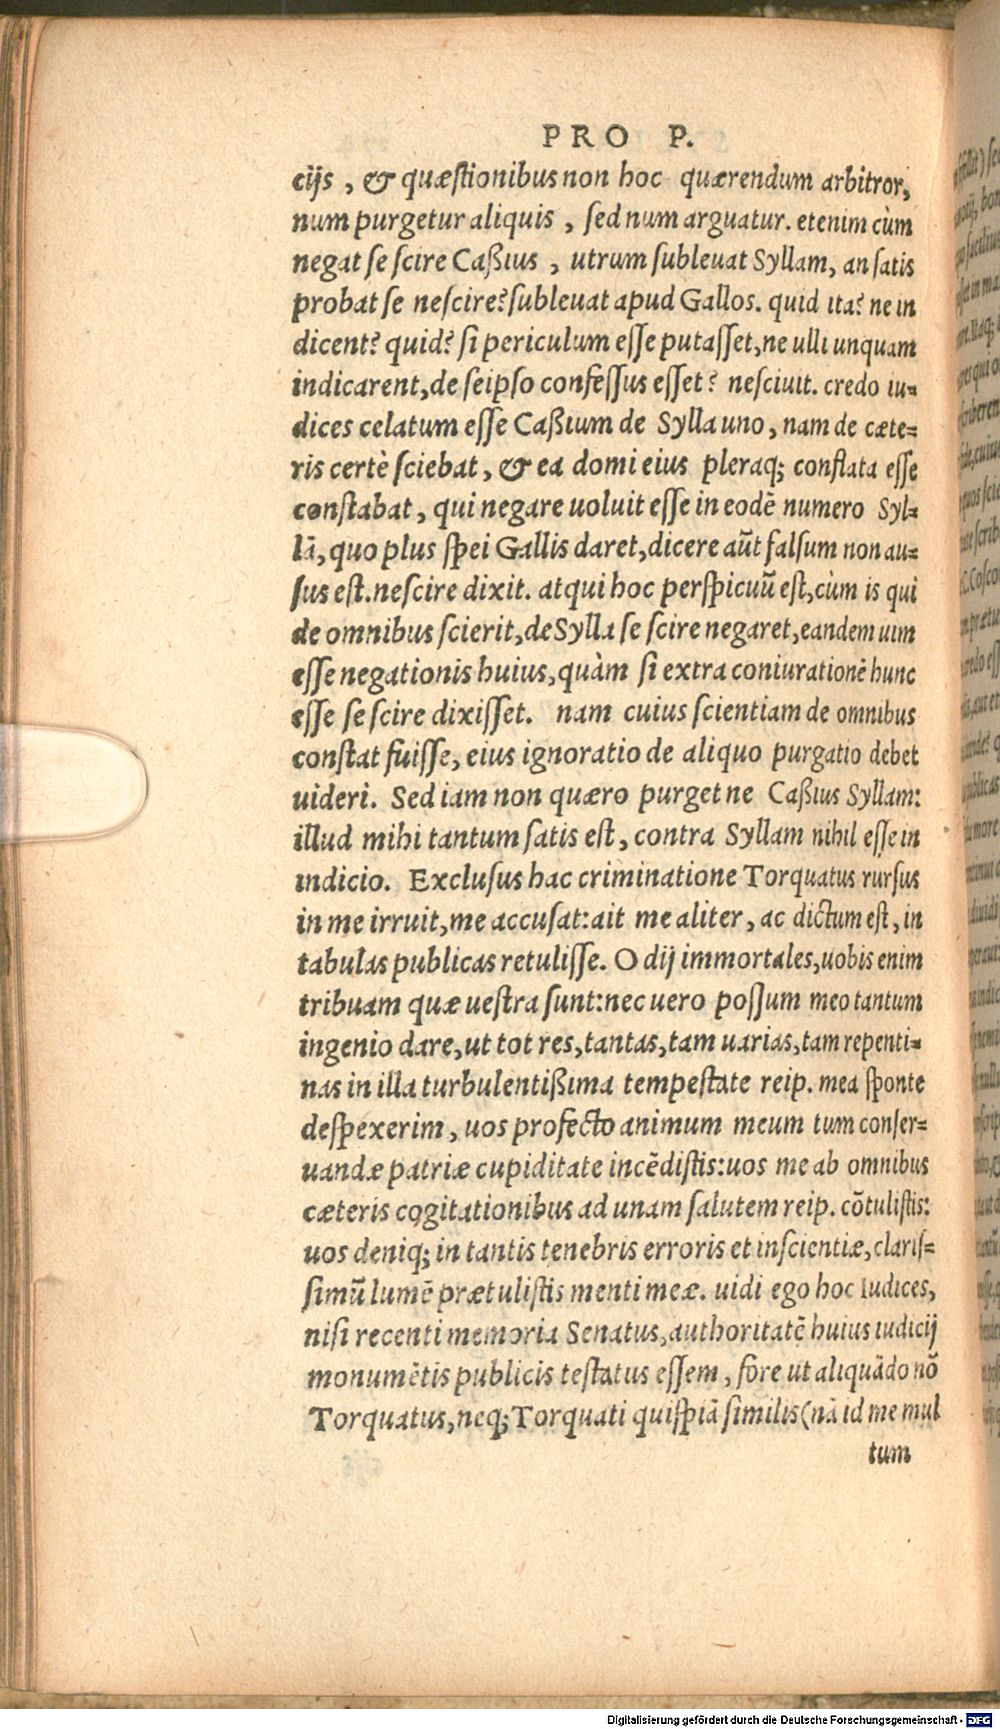 PRO P.
cijs, & quæstionibus non hoc quærendum arbitror,
num purgetur aliquis, sed num arguatur. etenim cùm
negat se scire Caßius, utrum subleuat Syllam, an satis
probat se nescire? subleuat apud Gallos. quid ita? ne in
dicent? quid? si periculum esse putasset, ne ulli unquam
indicarent, de seipso confessus esset? nesciuit. credo iu=
dices celatum esse Caßium de Sylla uno, nam de cæte=
ris certè sciebat, & ea domi eius pleraq; conflata esse
constabat, qui negare uoluit esse in eodē numero Syl=
lā, quo plus spei Gallis daret, dicere aūt falsum non au=
sus est. nescire dixit. atqui hoc perspicuū est, cùm is qui
de omnibus scierit, de Sylla se scire negaret, eandem uim
esse negationis huius, quàm si extra coniurationē hunc
esse se scire dixisset. nam cuius scientiam de omnibus
constat fuisse, eius ignoratio de aliquo purgatio debet
uideri. Sed iam non quæro purget ne Caßius Syllam:
illud mihi tantum satis est, contra Syllam nihil esse in
indicio. Exclusus hac criminatione Torquatus rursus
in me irruit, me accusat: ait me aliter, ac dictum est, in
tabulas publicas retulisse. O dij immortales, uobis enim
tribuam quæ uestra sunt: nec uero possum meo tantum
ingenio dare, ut tot res, tantas, tam uarias, tam repenti=
nas in illa turbulentißima tempestate reip. mea sponte
despexerim, uos profecto animum meum tum conser=
uandæ patriæ cupiditate incēdistis: uos me ab omnibus
cæteris cogitationibus ad unam salutem reip. cōtulistis:
uos deniq; in tantis tenebris erroris et inscientiæ, claris=
simū lumē prætulistis menti meæ. uidi ego hoc Iudices,
nisi recenti memoria Senatus, authoritatē huius iudicij
monumētis publicis testatus essem, fore ut aliquādo nō
Torquatus, neq; Torquati quispiā similis (nā id me mul
tum
Digitalisierung gefördert durch die Deutsche Forschungsgemeinschaft - DFG